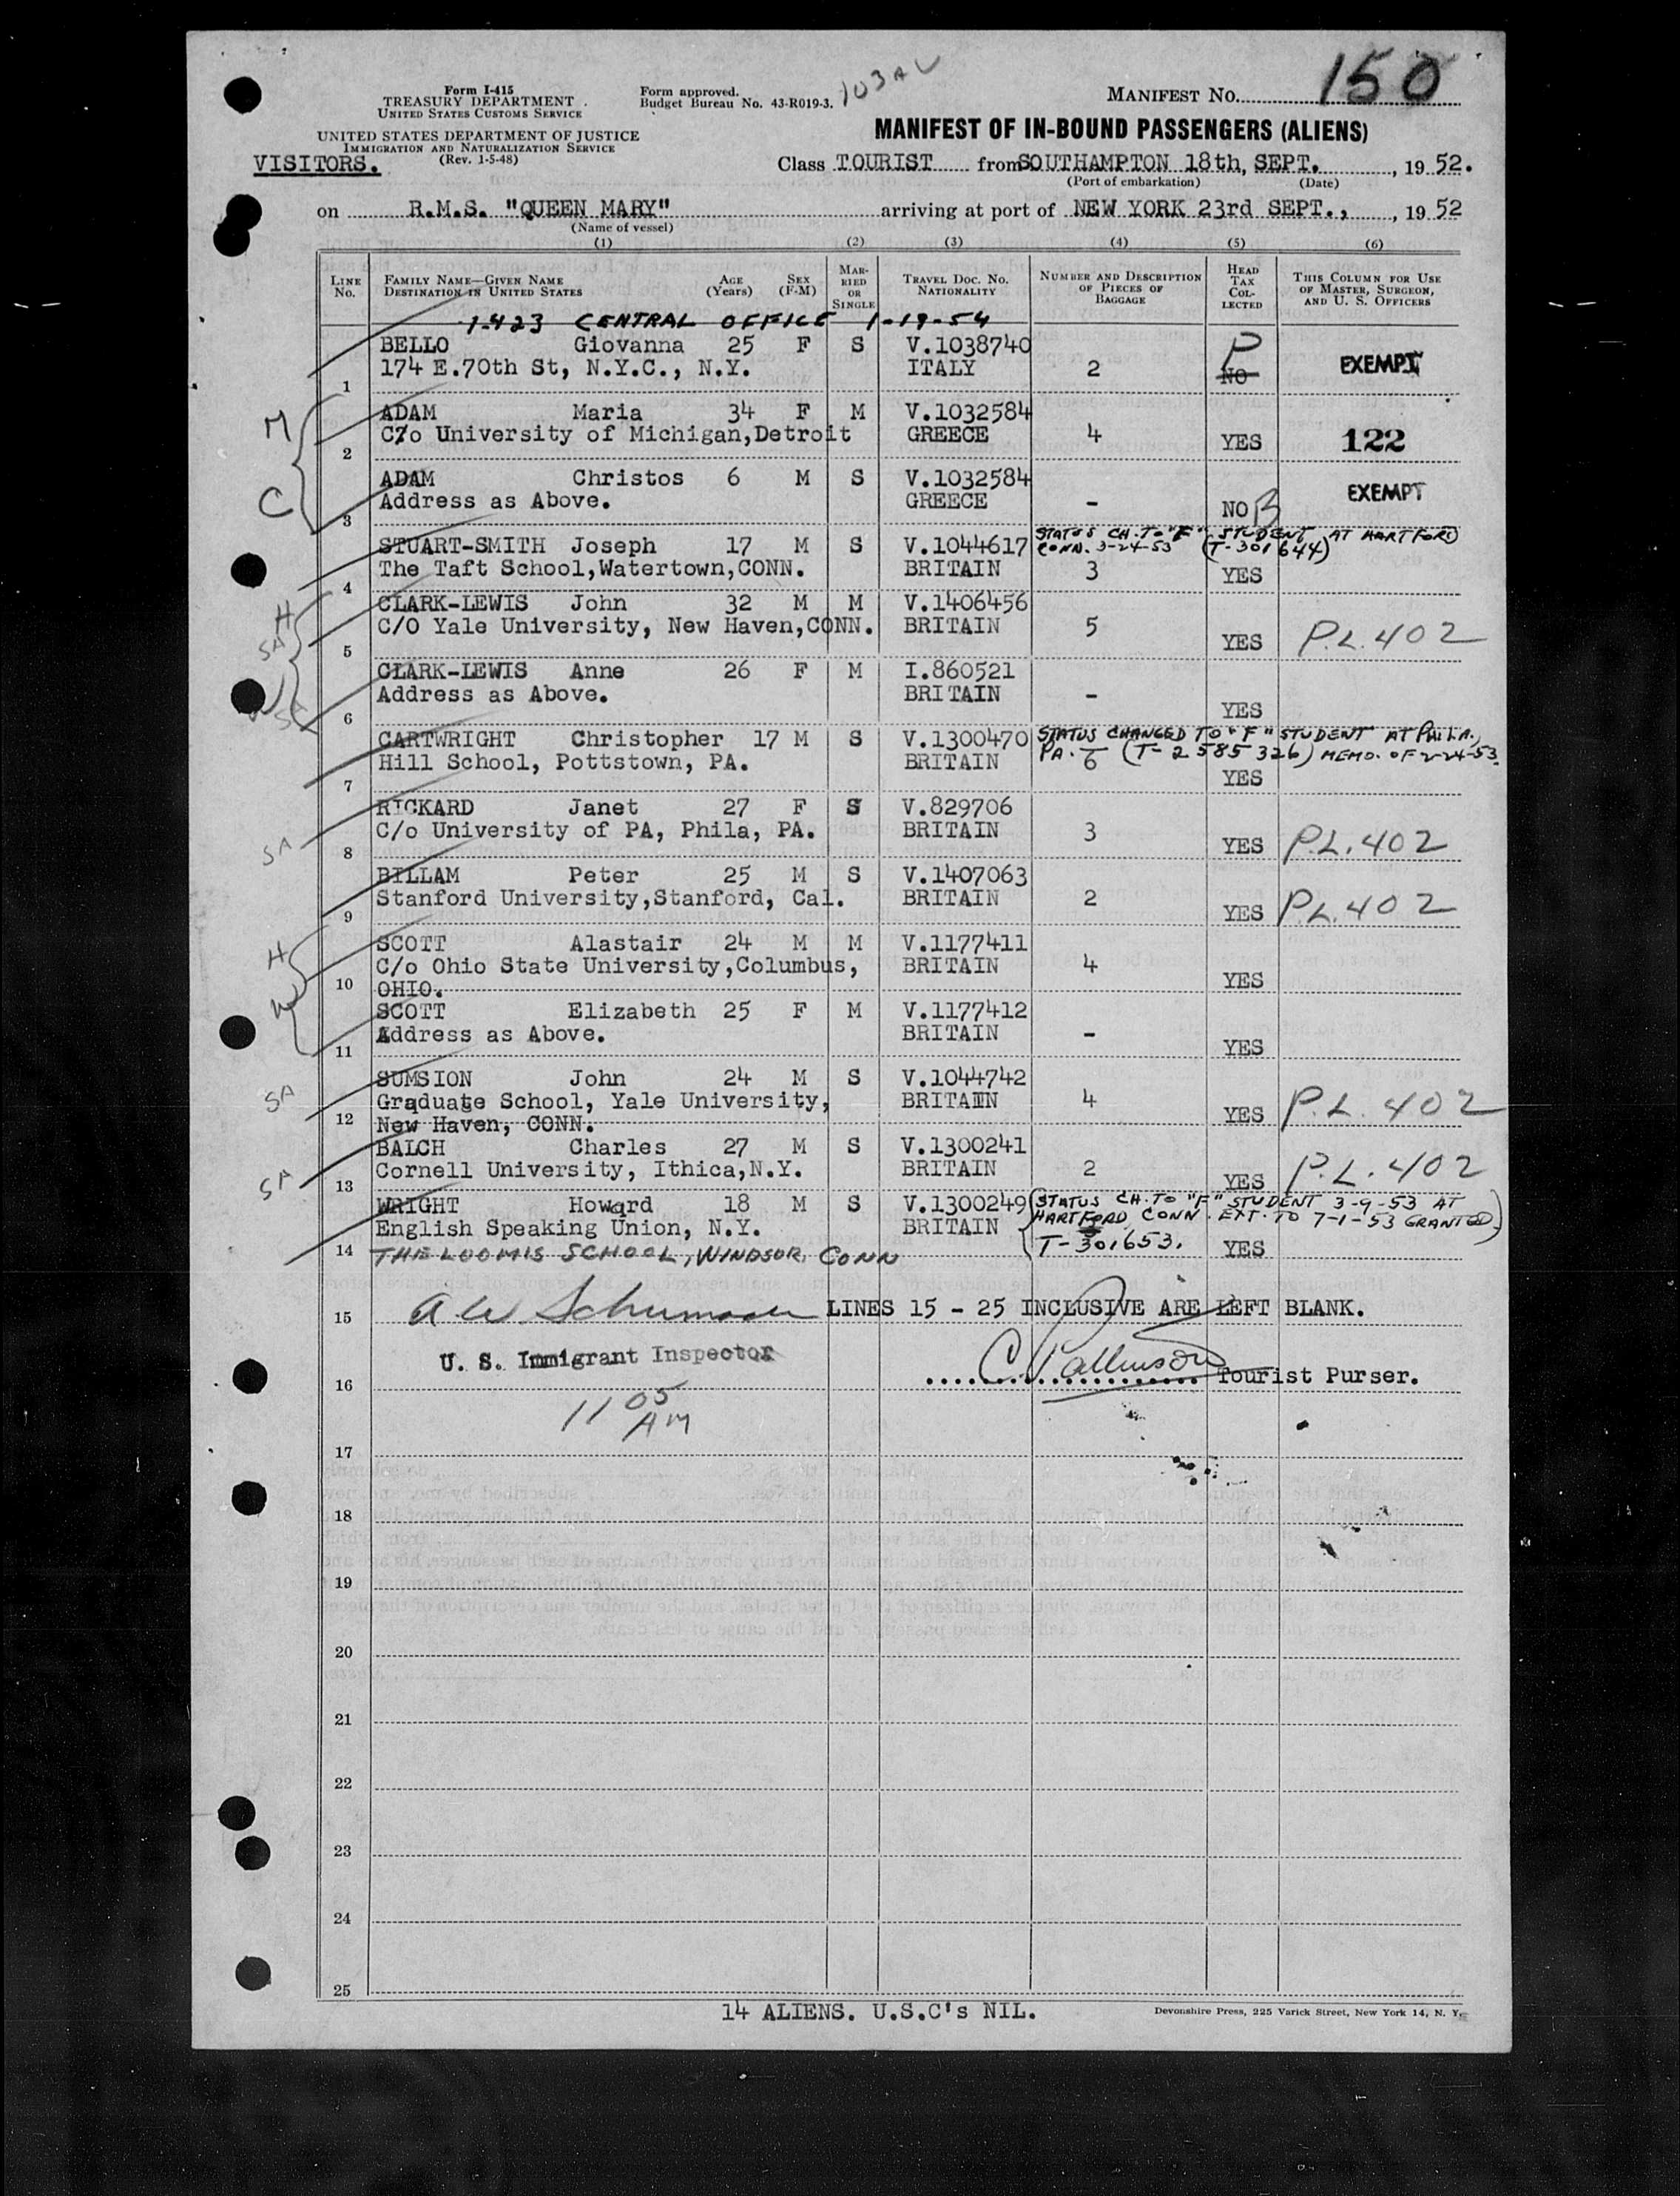 Form I-415
TREASURY DEPARTMENT
UNITED STATES CUSTOMS SERVICE
UNITED STATES DEPARTMENT OF JUSTICE
IMMIGRATION AND NATURALIZATION SERVICE
(Rev. 1-5-48)
VISITORS.
Form approved.
Budget Bureau No. 43-R019-3.
MANIFEST NO. 150
MANIFEST OF IN-BOUND PASSENGERS (ALIENS)
Class TOURIST from SOUTHAMPTON 18th, SEPT. , 19 52.
(Port of embarkation) (Date)
on R.M.S. "QUEEN MARY" arriving at port of NEW YORK 23rd SEPT., , 19 52
(Name of vessel)
(1) (2) (3) (4) (5) (6)
LINE NO. FAMILY NAME—GIVEN NAME DESTINATION IN UNITED STATES AGE (Years) SEX (F-M) MARRIED OR SINGLE TRAVEL DOC. NO. NATIONALITY NUMBER AND DESCRIPTION OF PIECES OF BAGGAGE HEAD TAX COLLECTED THIS COLUMN FOR USE OF MASTER, SURGEON, AND U. S. OFFICERS
1-423 CENTRAL OFFICE 1-19-54
BELLO Giovanna 25 F S V.1038740 P
1 174 E.70th St, N.Y.C., N.Y. ITALY 2 NO EXEMPT
M
ADAM Maria 34 F M V.1032584
2 C/o University of Michigan,Detroit GREECE 4 YES 122
ADAM Christos 6 M S V.1032584 EXEMPT
C
3 Address as Above. GREECE - NO B
STUART-SMITH Joseph 17 M S V.1044617 STATUS CH. TO "F" STUDENT AT HARTFORD
CONN. 3-24-53 (T-301644)
4 The Taft School,Watertown,CONN. BRITAIN 3 YES
H SA
CLARK-LEWIS John 32 M M V.1406456
5 C/O Yale University, New Haven,CONN. BRITAIN 5 YES P.L.402
W SA
CLARK-LEWIS Anne 26 F M I.860521
6 Address as Above. BRITAIN - YES
CARTWRIGHT Christopher 17 M S V.1300470 STATUS CHANGED TO "F" STUDENT AT PHILA.
PA. (T-2585326) MEMO. OF 2-24-53.
7 Hill School, Pottstown, PA. BRITAIN 6 YES
RICKARD Janet 27 F S V.829706
SA 8 C/o University of PA, Phila, PA. BRITAIN 3 YES P.L.402
BILLAM Peter 25 M S V.1407063
9 Stanford University,Stanford, Cal. BRITAIN 2 YES P.L.402
H
SCOTT Alastair 24 M M V.1177411
C/o Ohio State University,Columbus, BRITAIN 4
W 10 OHIO. YES
SCOTT Elizabeth 25 F M V.1177412
11 Address as Above. BRITAIN - YES
SA
SUMSION John 24 M S V.1044742
Graduate School, Yale University, BRITAIN 4
12 New Haven, CONN. YES P.L.402
BALCH Charles 27 M S V.1300241
SA 13 Cornell University, Ithica,N.Y. BRITAIN 2 YES P.L.402
WRIGHT Howard 18 M S V.1300249 STATUS CH. TO "F" STUDENT 3-9-53 AT
HARTFORD, CONN. EXT. TO 7-1-53 GRANTED
English Speaking Union, N.Y. BRITAIN T-301653.
14 THE LOOMIS SCHOOL, WINDSOR, CONN YES
15 A W LINES 15 - 25 INCLUSIVE ARE LEFT BLANK.
U. S. Immigrant Inspector
16 Tourist Purser.
11 05
AM
17
18
19
20
21
22
23
24
25
14 ALIENS. U.S.C's NIL.
Devonshire Press, 225 Varick Street, New York 14, N. Y.